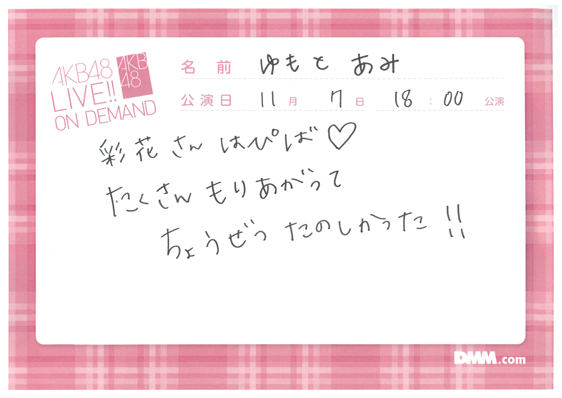 AKB48
LIVE!!
ON DEMAND
AKB
48
名前 ゆもと あみ
公演日 11月 7日 18:00 公演
彩花さん はぴば♡
たくさん もりあがって
ちょうぜつ たのしかった!!
DMM.com